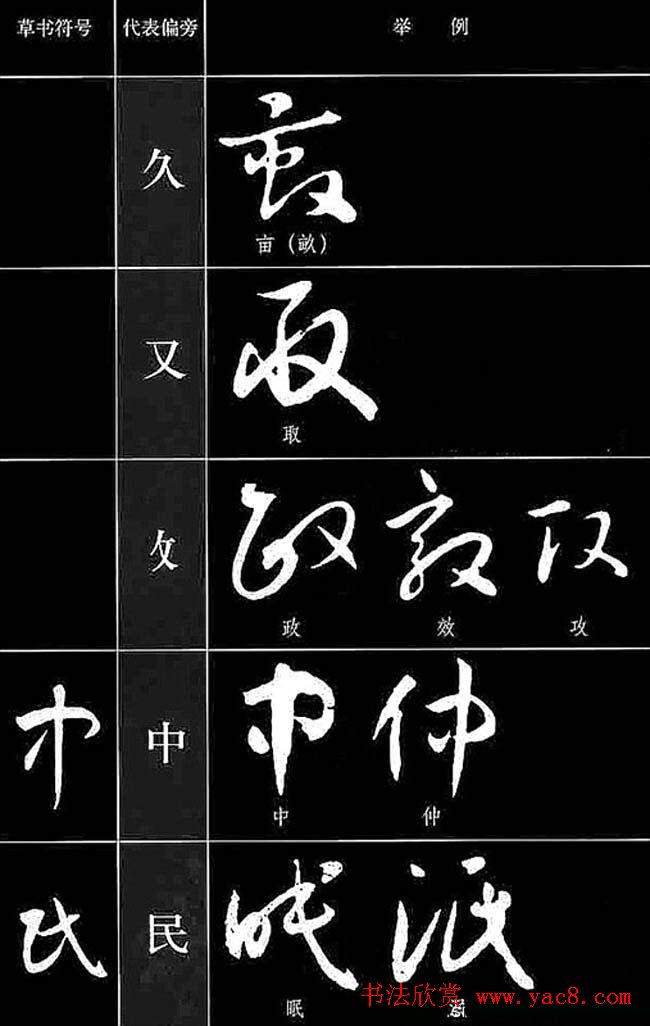 草书符号 代表偏旁 举 例
久
亩（畝）
又
取
攵
政 效 攻
中
中 仲
民
眠
书法欣赏 www.yac8.com